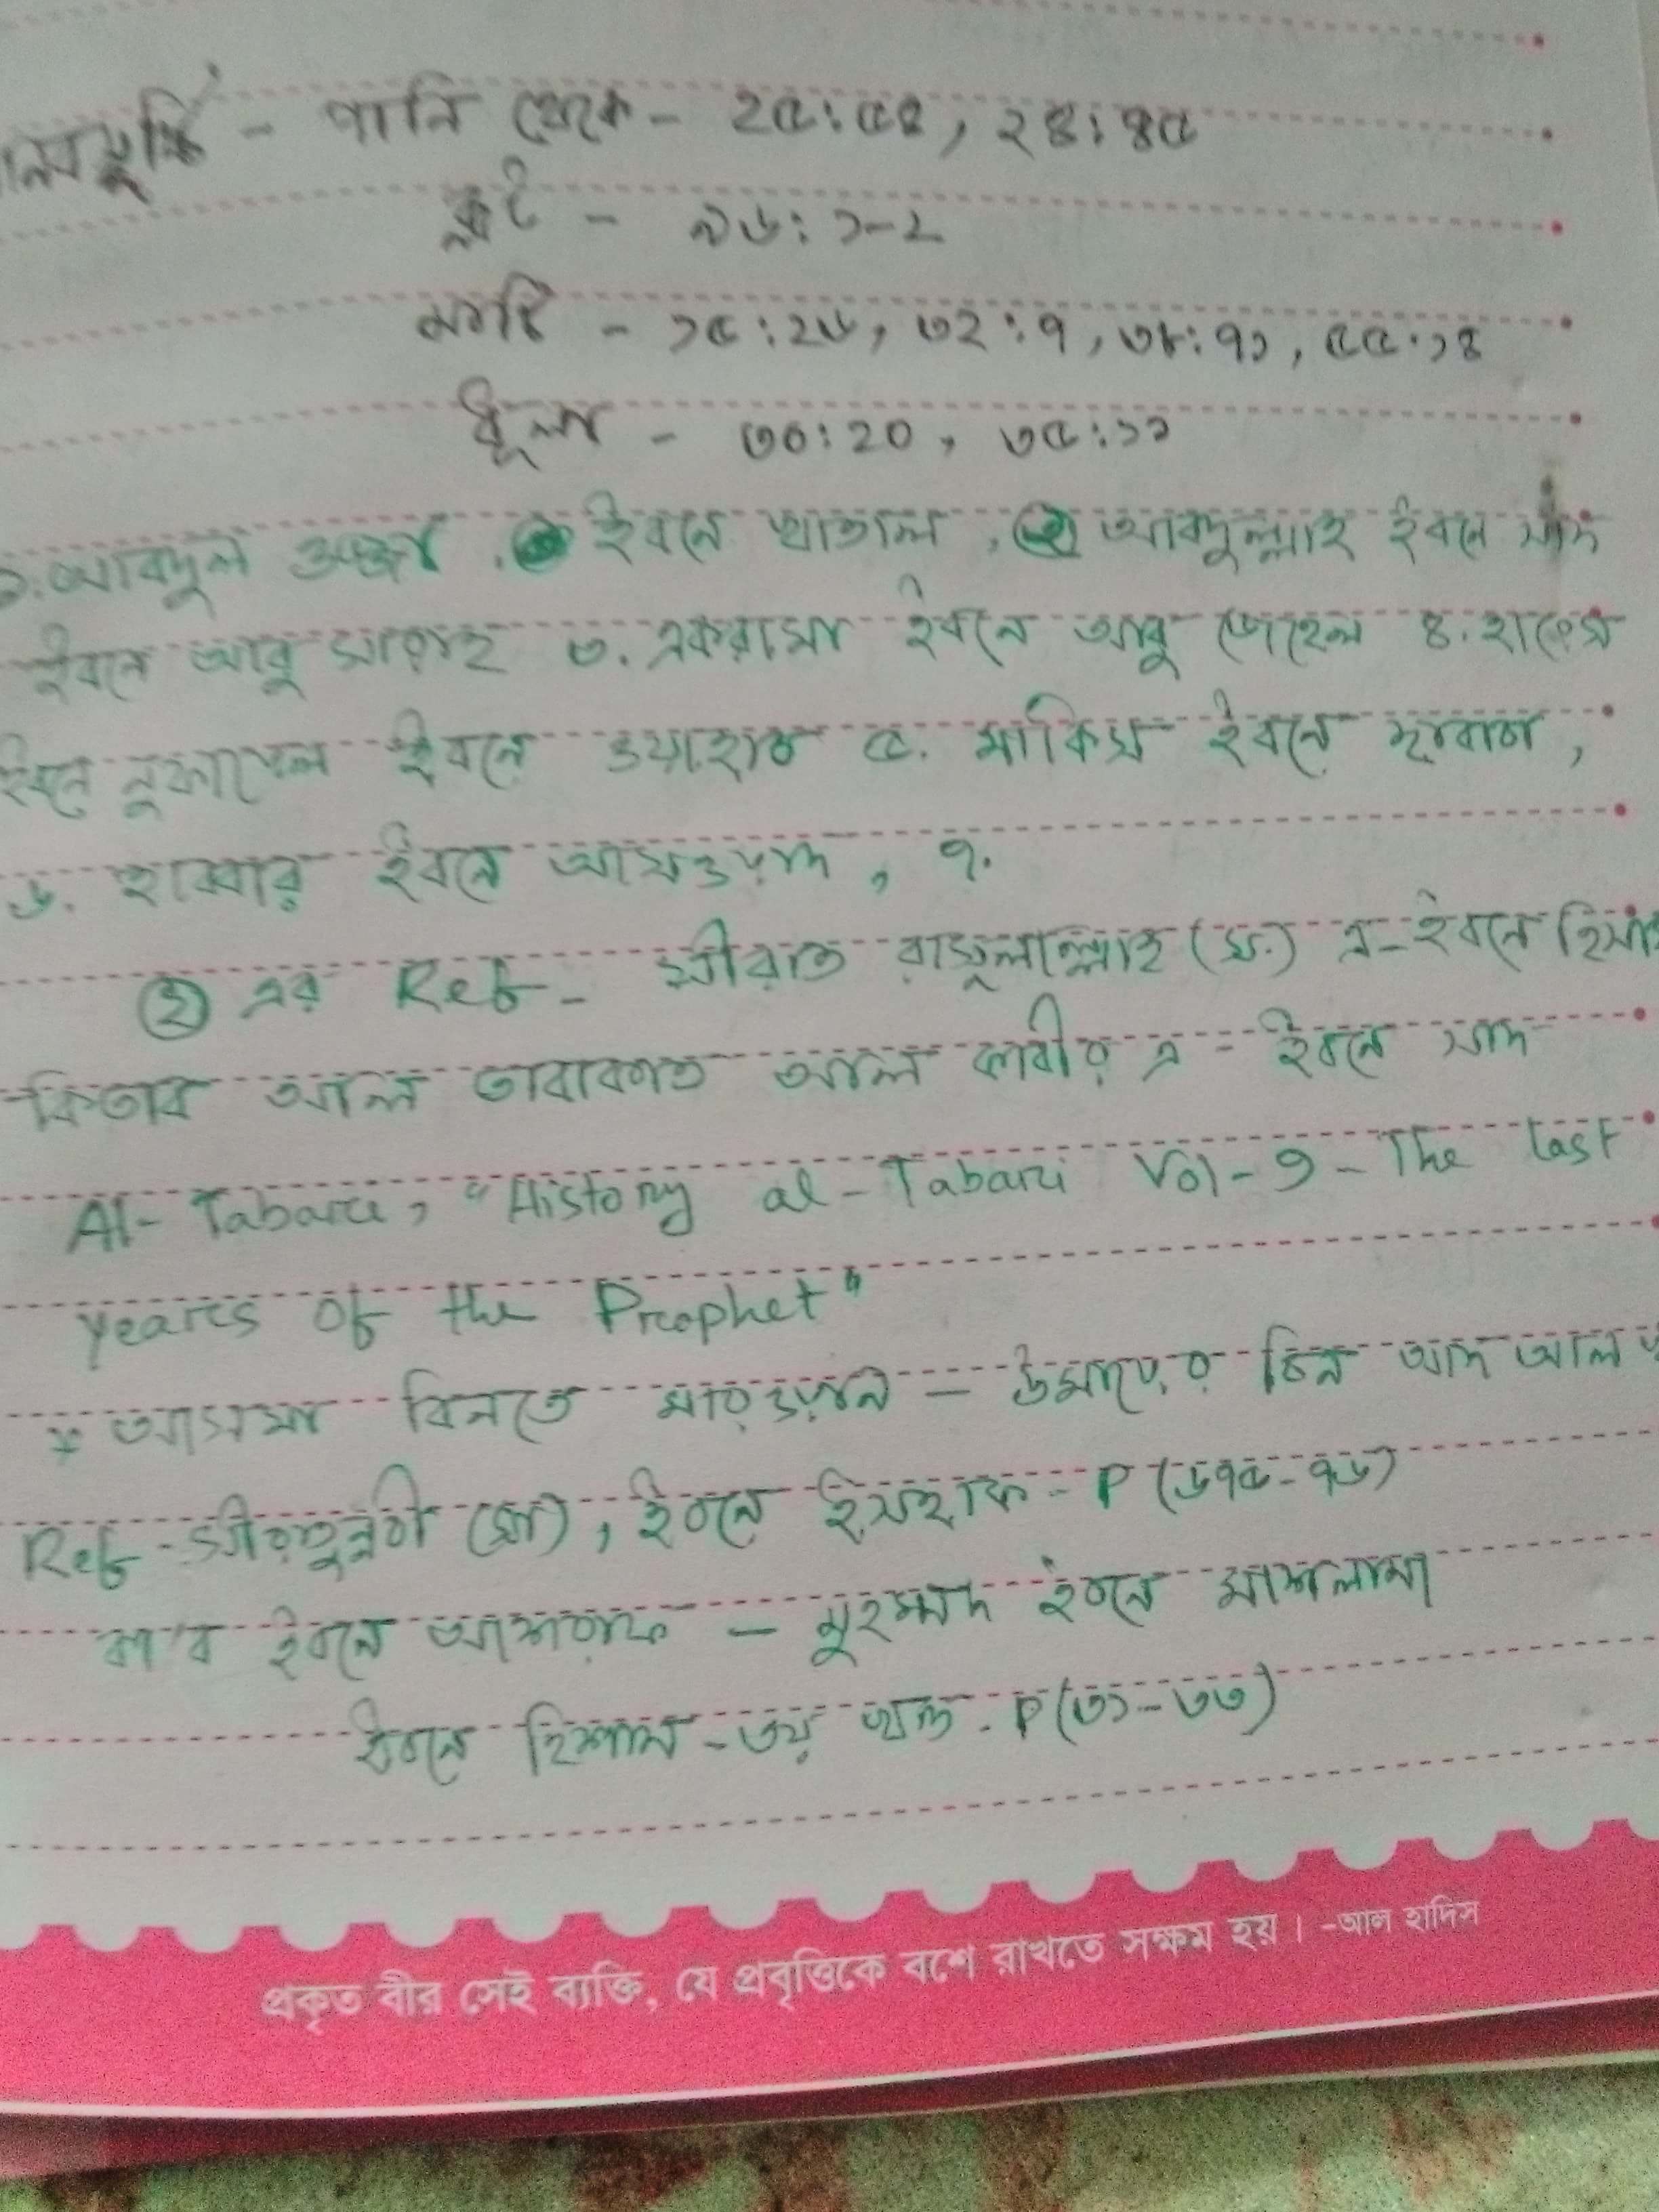 - পানি থেকে - ২৫:৫৪, ২৪:৪৫
- ৯৬: ১-২
মাটি - ১৫:২৬, ৩২:৭, ৩৮:৭১, ৫৫:১৪
ধূলা - ৩০:২০, ৩৫:১১
১. আবদুল উজ্জা, ইবনে খাতাল, ২ আবদুল্লাহ ইবনে সাদ
ইবনে আবু সারাহ ৩. একরামা ইবনে আবু জেহেল ৪. হারেস
ইবনে নুফায়েল ইবনে ওয়াহাব ৫. মাকিস ইবনে
৬. হাব্বার ইবনে আসওয়াদ, ৭.
২ এর Ref - সীরাত রাসূলাল্লাহ (স.) এ- ইবনে
কিতাব আল তাবাকাত আল কাবীর এ - ইবনে সাদ
Al-Tabari, "History al-Tabari Vol-9- The last
years of the Prophet"
* আসমা বিনতে মারওয়ান - উমায়ের বিন আদ আল
Ref - সীরাতুন্নবী (সা), ইবনে ইসহাক - P (৬৭৫-৭৬)
কা'ব ইবনে আশরাফ - মুহম্মাদ ইবনে মাসলামা
ইবনে হিশাম - ৩য় খন্ড - P (৩১-৩৩)
প্রকৃত বীর সেই ব্যক্তি, যে প্রবৃত্তিকে বশে রাখতে সক্ষম হয়। -আল হাদিস